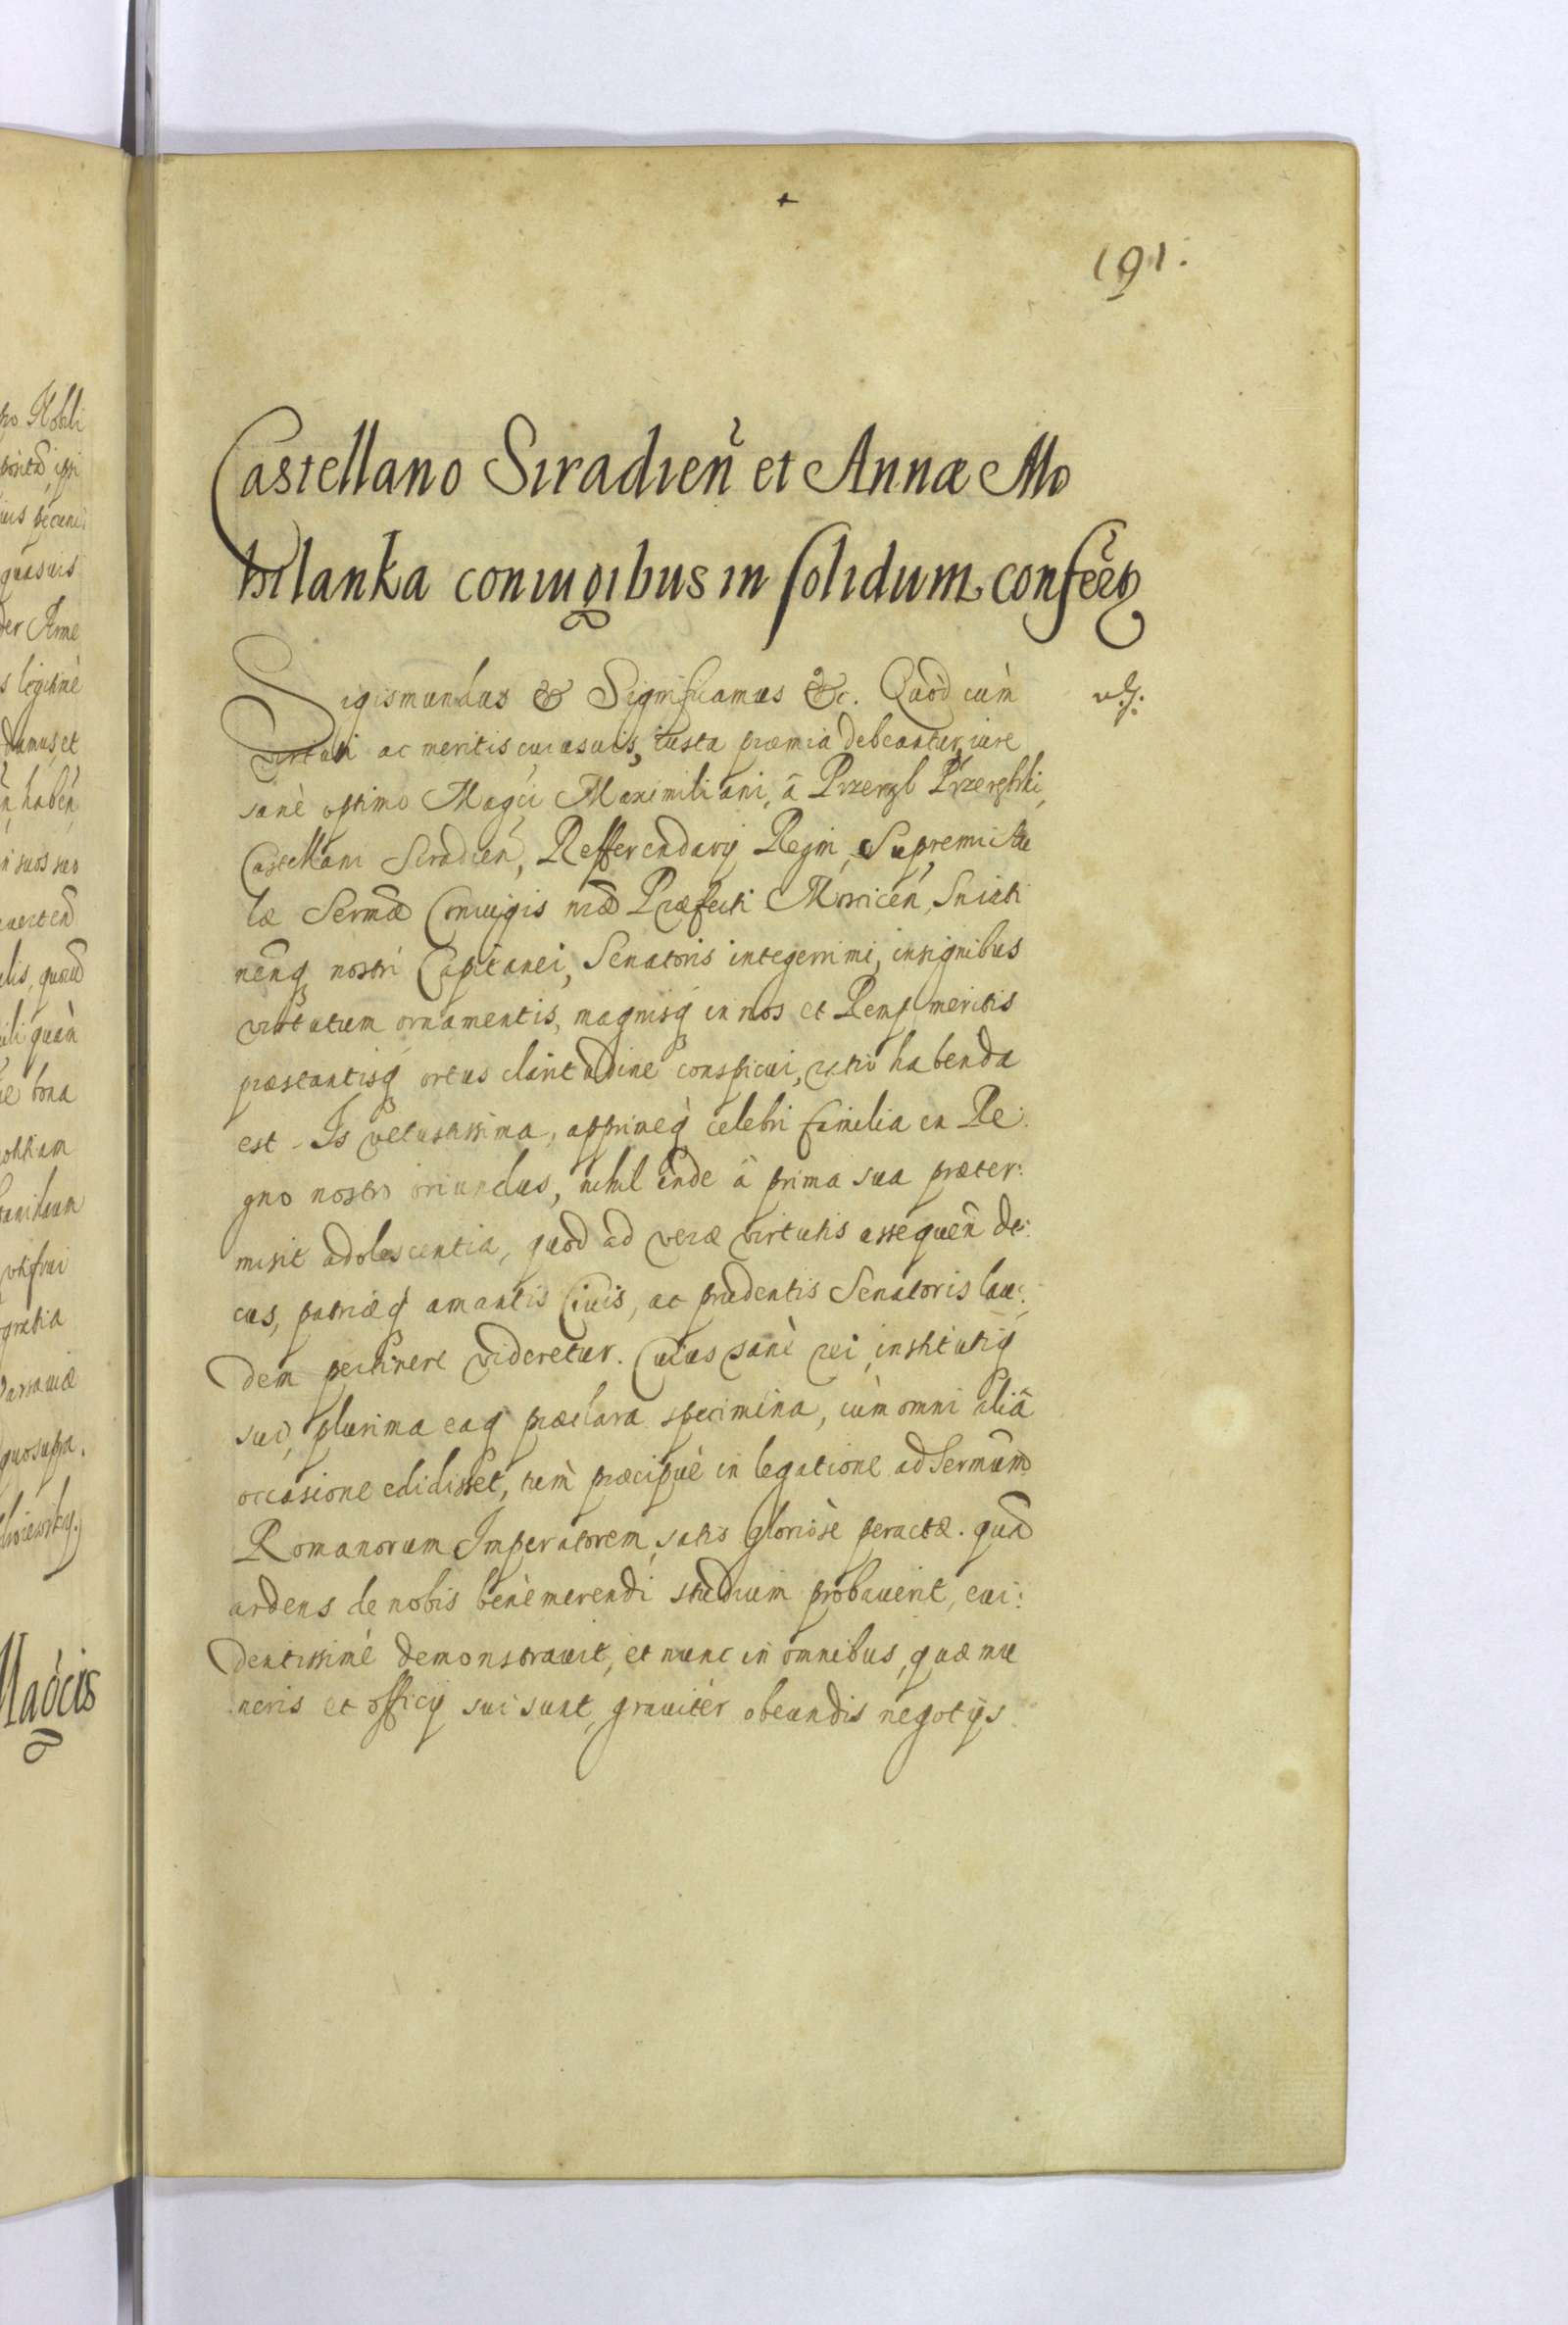 191.
Castellano Siradien̄ et Annæ Mo
hilanka coniugibus in solidum confer̄tʒ
Sigismundus & Significamus &c. Quòd cùm
virtuti ac meritis cuiusuis, iusta præmia debeantur, iure
sanè optimo Magci Maximiliani, à Przeręb Przerębski,
Castellani Siradien̄, Refferendarij Regni, Supremi Au
læ Sermæ Coniugis nræ Præfecti Mosticen̄, Sniati
nēnq̨ nostri Capitanei, Senatoris integerrimi, insignibus
virtutum ornamentis, magnisq̨ in nos et Remp meritis
præstantisq̨ ortus claritudine conspicui, ratio habenda
est. Is vetustissima, apprimeq̨ celebri familia in Re:
gno nostro oriundus, nihil inde à prima sua præter:
misit adolescentia, quod ad veræ virtutis assequen̄ de:
cus, patriæq̨ amantis Ciuis, ac prudentis Senatoris lau:
dem pertinere videretur. Cuius sanè rei, institutiq̨
sui, plurima eaq̨ præclara specimina, cùm omni aliā
occasione edidisset, tùm præcipuè in legatione ad Sermum
Romanorum Imperatorem, satis gloriosè peracta. quā
ardens de nobis benè merendi studium probauerit, eui:
dentissimè demonstrauit, et nunc in omnibus, quæ mu
neris et officij sui sunt, grauitèr obeundis negotijs
po Nobili
ius pecuni
quasuis
s legitimè
damus, et
haben̄
in suos suo
quàm
bona
gratia
quo supra.
Magcis